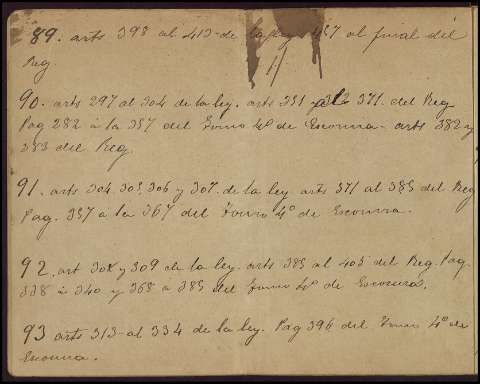 89. arts 398 al 413 de la ley 437 al final del
Reg
90. arts 297 al 304 de la ley. arts 351 al 371. del Reg
Pag 282 á la 337 del Tomo 4º de Escorina - arts 382 y
383 del Reg.
91. arts 304, 305, 306 y 307. de la ley arts 371 al 385 del Reg
Pag. 337 á la 367 del Tomo 4º de Escorina.
92. art 308 y 309 de la ley. arts 385 al 405 del Reg. Pag.
338 á 340 y 368 á 385 del Tomo 4º de Escorina.
93 arts 313 al 334 de la ley. Pag 396 del Tomo 4º de
Escorina.